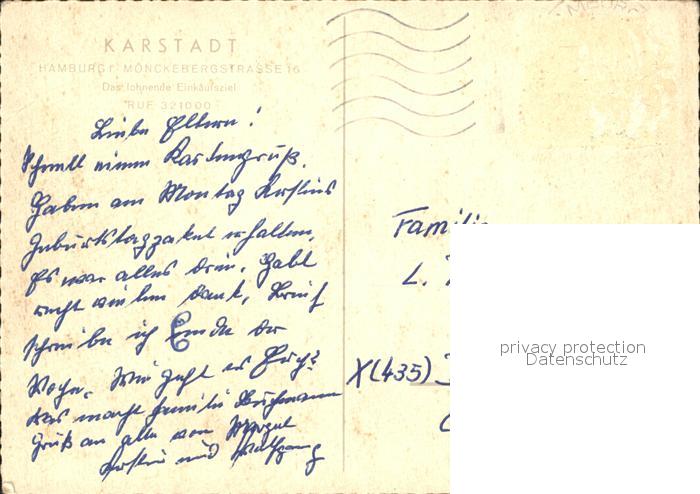 KARSTADT
HAMBURG 1 MÖNCKEBERGSTRASSE 16
Das lohnende Einkaufsziel
RUF 321000
Liebe Eltern!
Schnell einen Kartengruß.
Haben am Montag Kerstins
Geburtstagspaket erhalten.
Es war alles drin. Habt
recht vielen Dank, Brief
schreibe ich Ende der
Woche. Wie geht es Euch?
Was macht Familie
Gruß an alle von
Kerstin und Wolfgang
Familie
L.
X(435)
privacy protection
Datenschutz